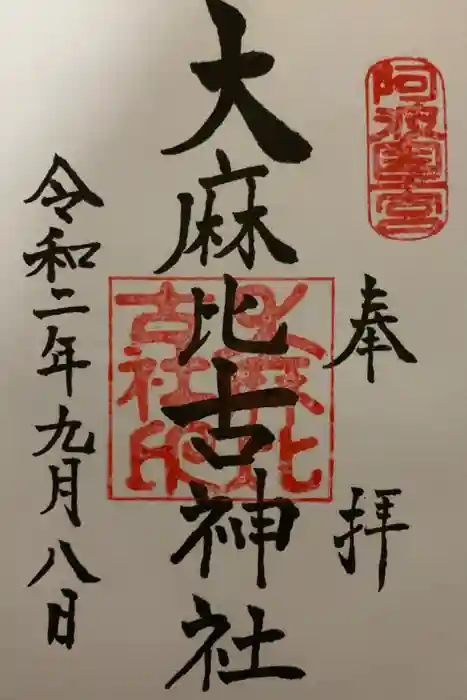 阿波國一宮
奉拝
大麻比古神社
大麻比
古社印
令和二年九月八日